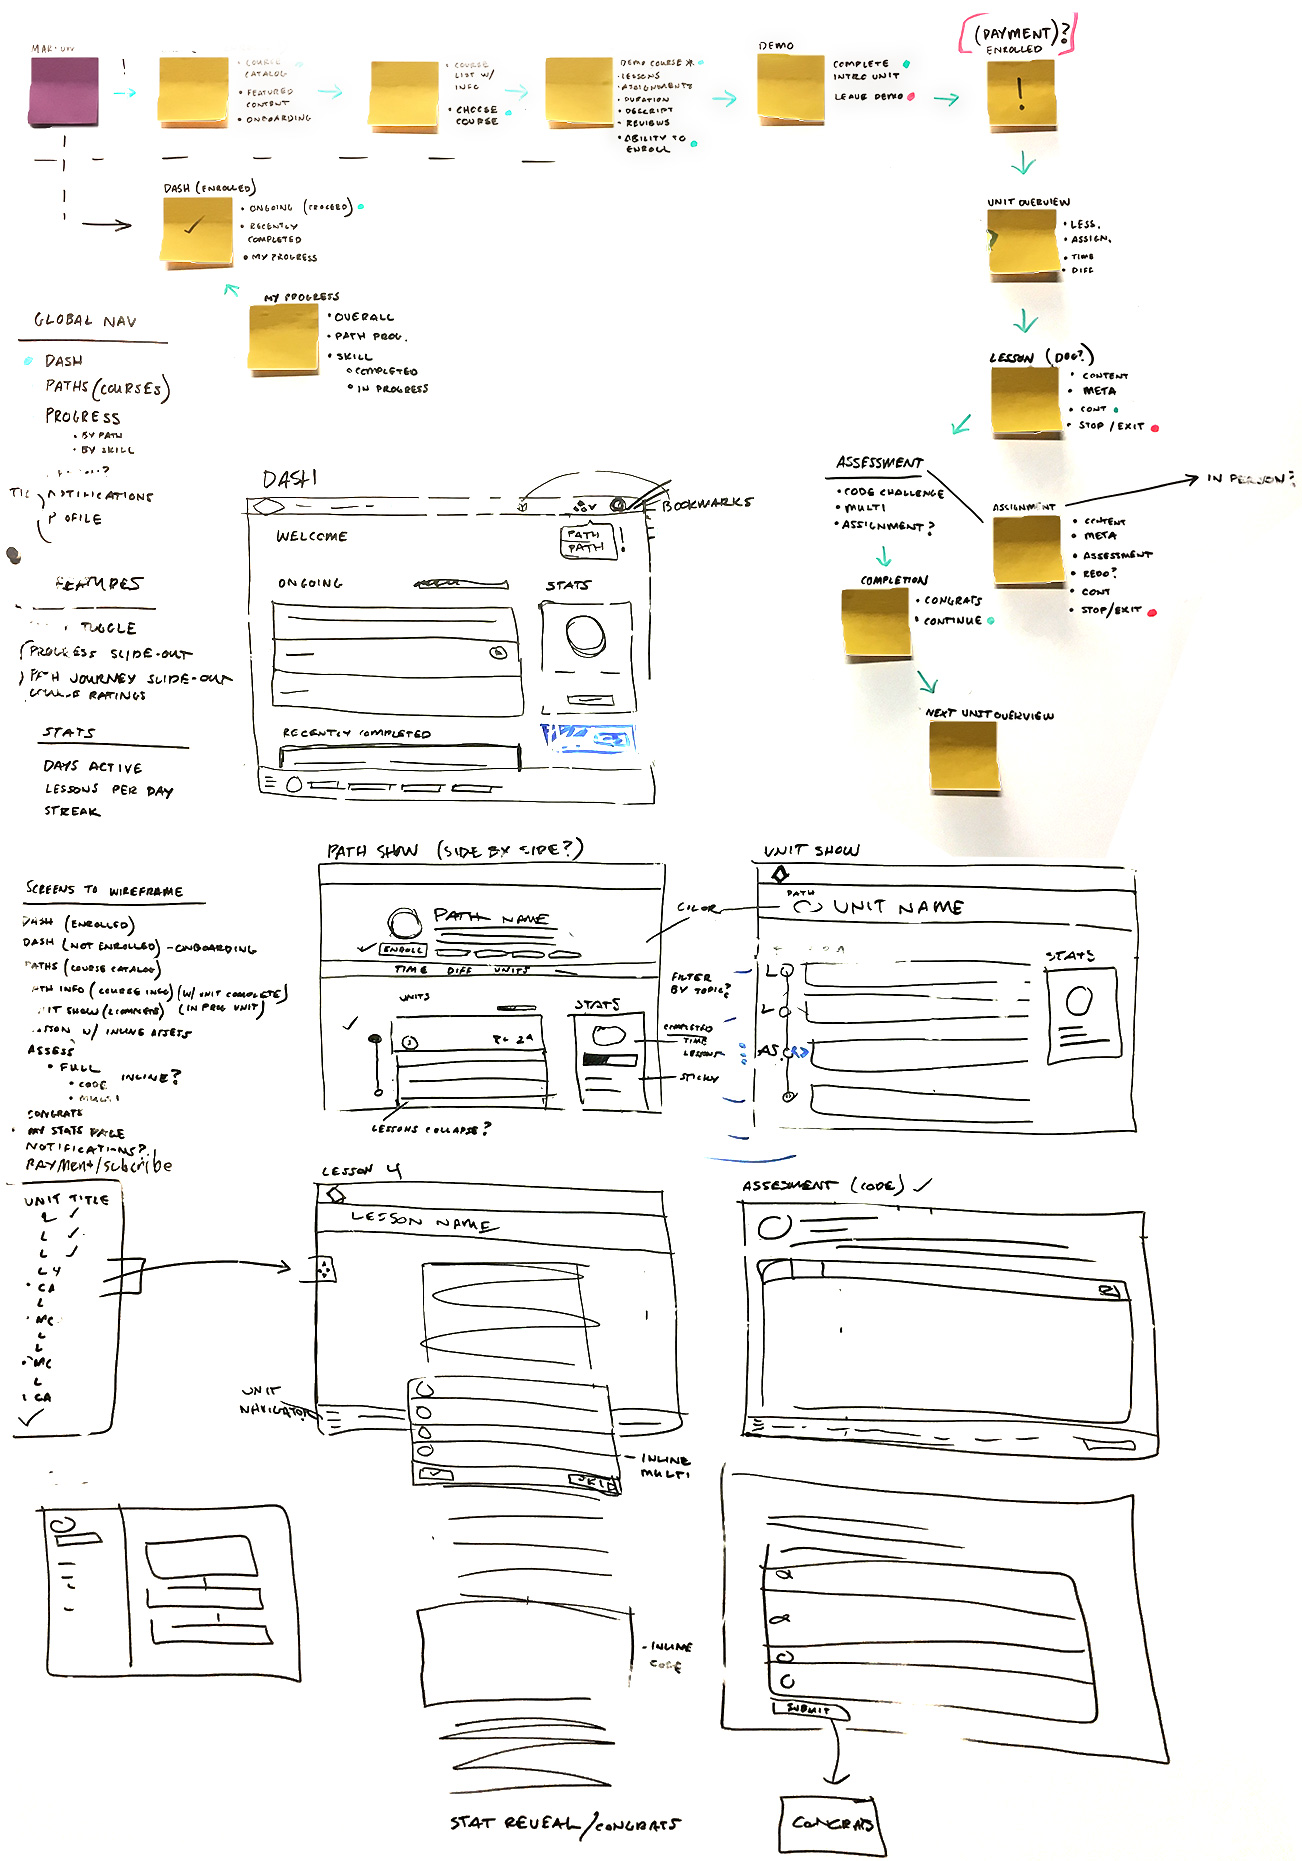 !
COURSE
CATALOG
• FEATURED
CONTENT
• ONBOARDING
• COURSE
LIST W/
INFO
• CHOOSE
COURSE
DEMO COURSE
• LESSONS
• ASSIGNMENTS
• DURATION
• DESCRIPT
• REVIEWS
• ABILITY TO
ENROLL
DEMO
COMPLETE
INTRO UNIT
LEAVE DEMO
(PAYMENT)?
ENROLLED
!
DASH (ENROLLED)
• ONGOING (PROCEED)
• RECENTLY
COMPLETED
• MY PROGRESS
MY PROGRESS
• OVERALL
• PATH PROG.
• SKILL
• COMPLETED
• IN PROGRESS
UNIT OVERVIEW
• LESS.
• ASSIGN.
• TIME
• DIFF
LESSON
• CONTENT
• META
• CONT
• STOP/EXIT
ASSESSMENT
• CODE CHALLENGE
• MULTI
• ASSIGNMENT?
ASSIGNMENT
• CONTENT
• META
• ASSESSMENT
• REDO?
• CONT
STOP/EXIT
IN PERSON?
COMPLETION
• CONGRATS
• CONTINUE
NEXT UNIT OVERVIEW
GLOBAL NAV
DASH
PATHS (COURSES)
PROGRESS
• BY PATH
• BY SKILL
NOTIFICATIONS
FEATURES
TOGGLE
PROGRESS SLIDE-OUT
PATH JOURNEY SLIDE-OUT
RATINGS
STATS
DAYS ACTIVE
LESSONS PER DAY
STREAK
DASH
BOOKMARKS
WELCOME
PATH
PATH
!
ONGOING
STATS
RECENTLY COMPLETED
SCREENS TO WIREFRAME
DASH (ENROLLED)
DASH (NOT ENROLLED) - ONBOARDING
PATHS (COURSE CATALOG)
INFO (COURSE INFO) (W/ UNIT COMPLETE)
SHOW (IN PROG UNIT)
W/ INLINE ASSESS
ASSESS
• FULL
• CODE INLINE?
• MULTI
CONGRATS
MY STATS PAGE
NOTIFICATIONS?
PAYMENT/subscribe
PATH SHOW (SIDE BY SIDE?)
PATH NAME
ENROLL
TIME DIFF UNITS
UNITS
STATS
LESSONS COLLAPSE?
COLOR
FILTER
BY TOPIC?
COMPLETED
TIME
LESSONS
STICKY
UNIT SHOW
PATH
UNIT NAME
L
L
AS.
STATS
UNIT TITLE
L
L
L
L 4
• CA
L
• MC
L
L
• MC
L
CA
LESSON 4
LESSON NAME
UNIT
NAVIGATOR
SKIP
- INLINE
MULTI
- INLINE
CODE
STAT REVEAL/CONGRATS
ASSESMENT (CODE)
SUBMIT
CONGRATS